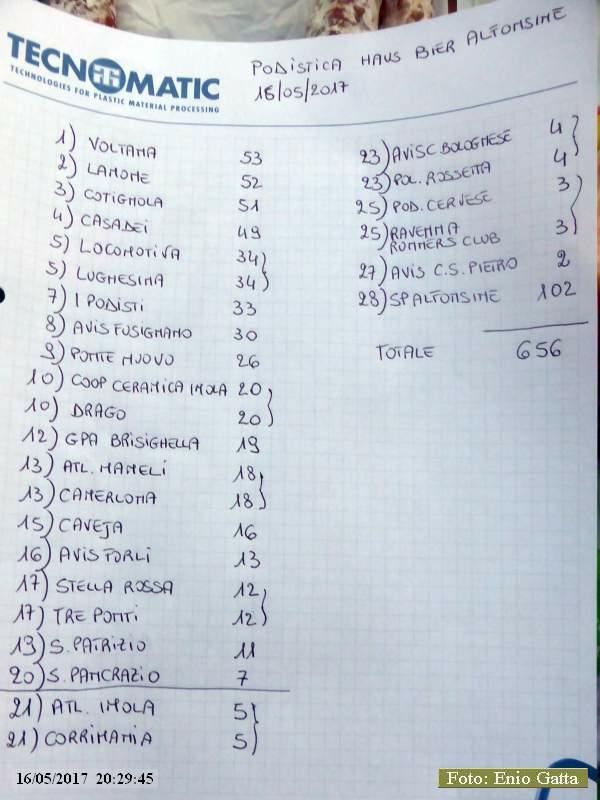 TECNOMATIC
TECHNOLOGIES FOR PLASTIC MATERIAL PROCESSING
PODISTICA HAUS BIER ALFONSINE
16/05/2017
1) VOLTANA 53
2) LAMONE 52
3) COTIGNOLA 51
4) CASADEI 49
5) LOCOMOTIVA 34
5) LUGHESINA 34
7) I PODISTI 33
8) AVIS FUSIGNANO 30
9) PONTE NUOVO 26
10) COOP CERAMICA IMOLA 20
10) DRAGO 20
12) GPA BRISIGHELLA 19
13) ATL. MAMELI 18
13) CAMERLONA 18
15) CAVEJA 16
16) AVIS FORLI 13
17) STELLA ROSSA 12
17) TRE PONTI 12
19) S. PATRIZIO 11
20) S. PANCRAZIO 7
21) ATL. IMOLA 5
21) CORRIMANIA 5
23) AVIS C BOLOGNESE 4
23) POL. ROSSETTA 4
25) POD. CERVESE 3
25) RAVENNA
RUNNERS CLUB 3
27) AVIS C.S. PIETRO 2
28) SP ALFONSINE 102
TOTALE 656
16/05/2017 20:29:45
Foto: Enio Gatta